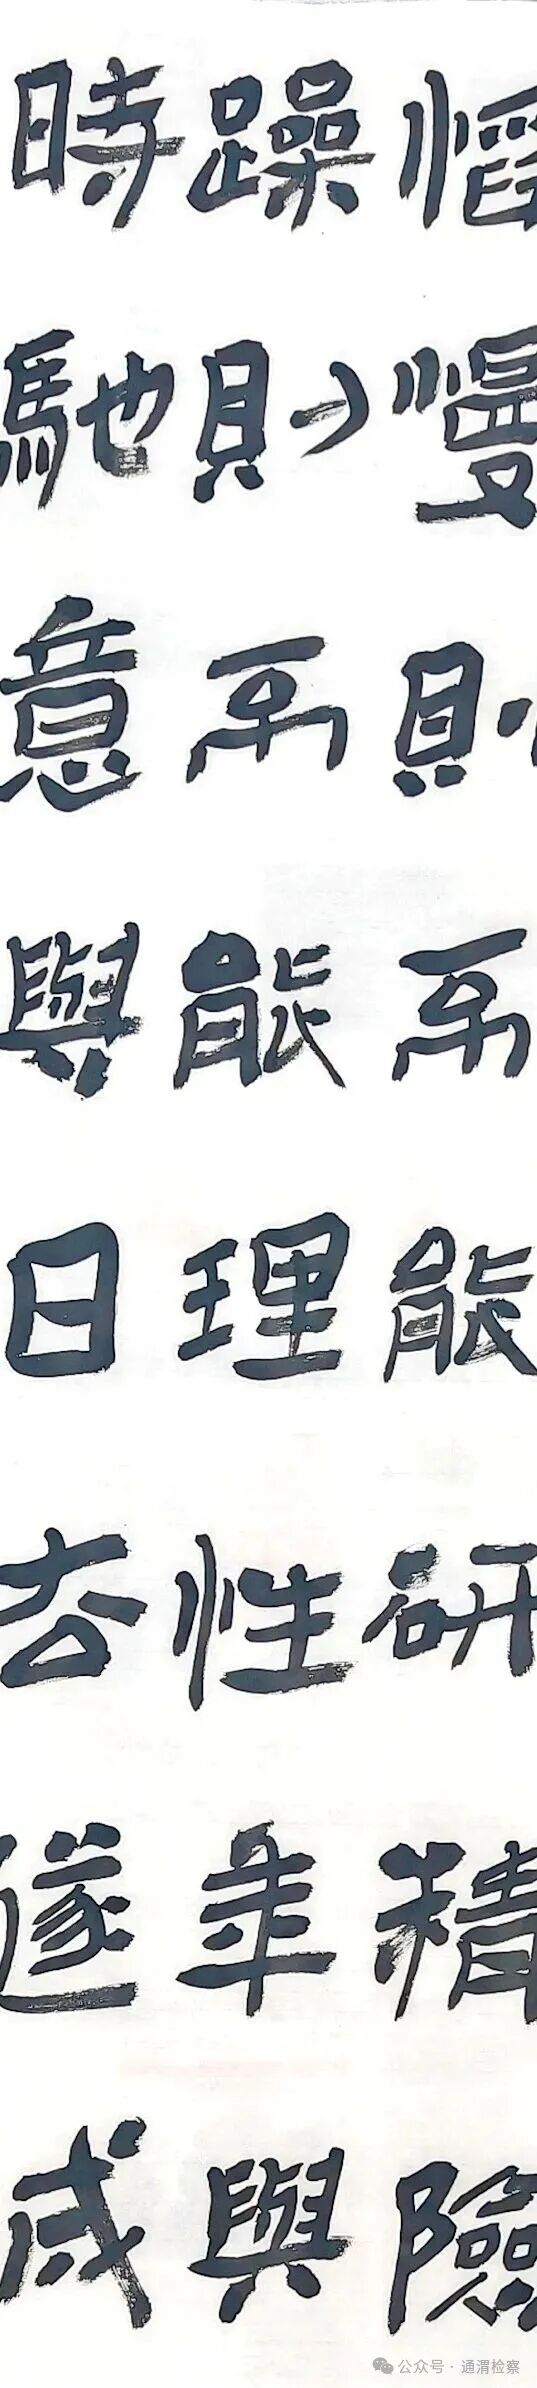 慆慢則不能研精險
躁則不能理性年與
時馳意與日去遂成
公众号 · 通渭检察